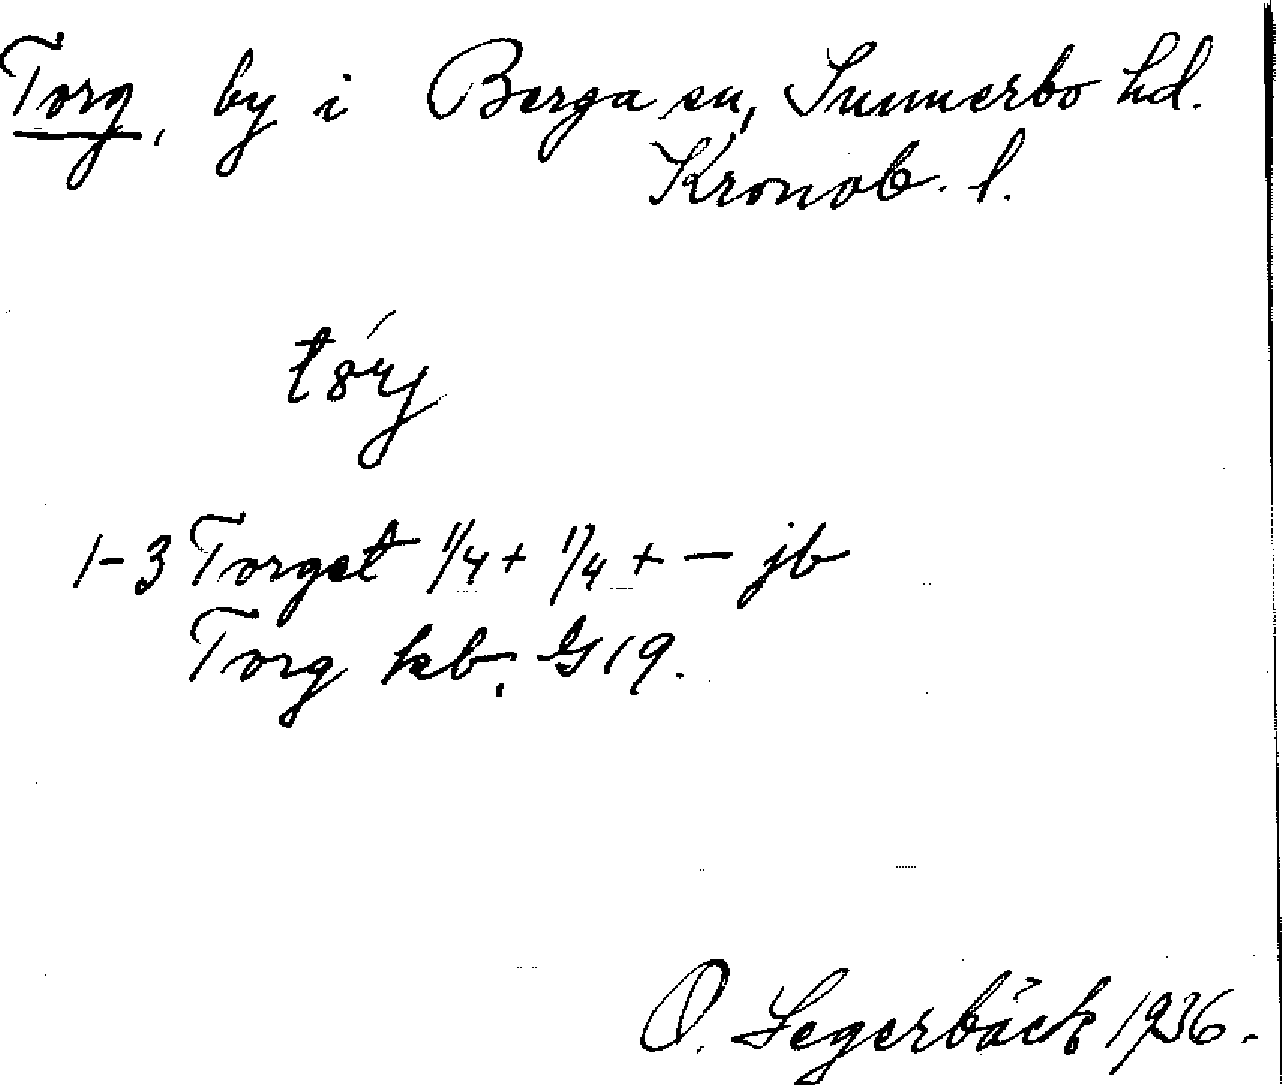 Torg, by i Berga sn, Sunnerbo hd.
Kronob. l.
tórj
1-3 Torget 1/4 + 1/4 + — jb
Torg kb. G 19.
O. Segerbäck 1936.